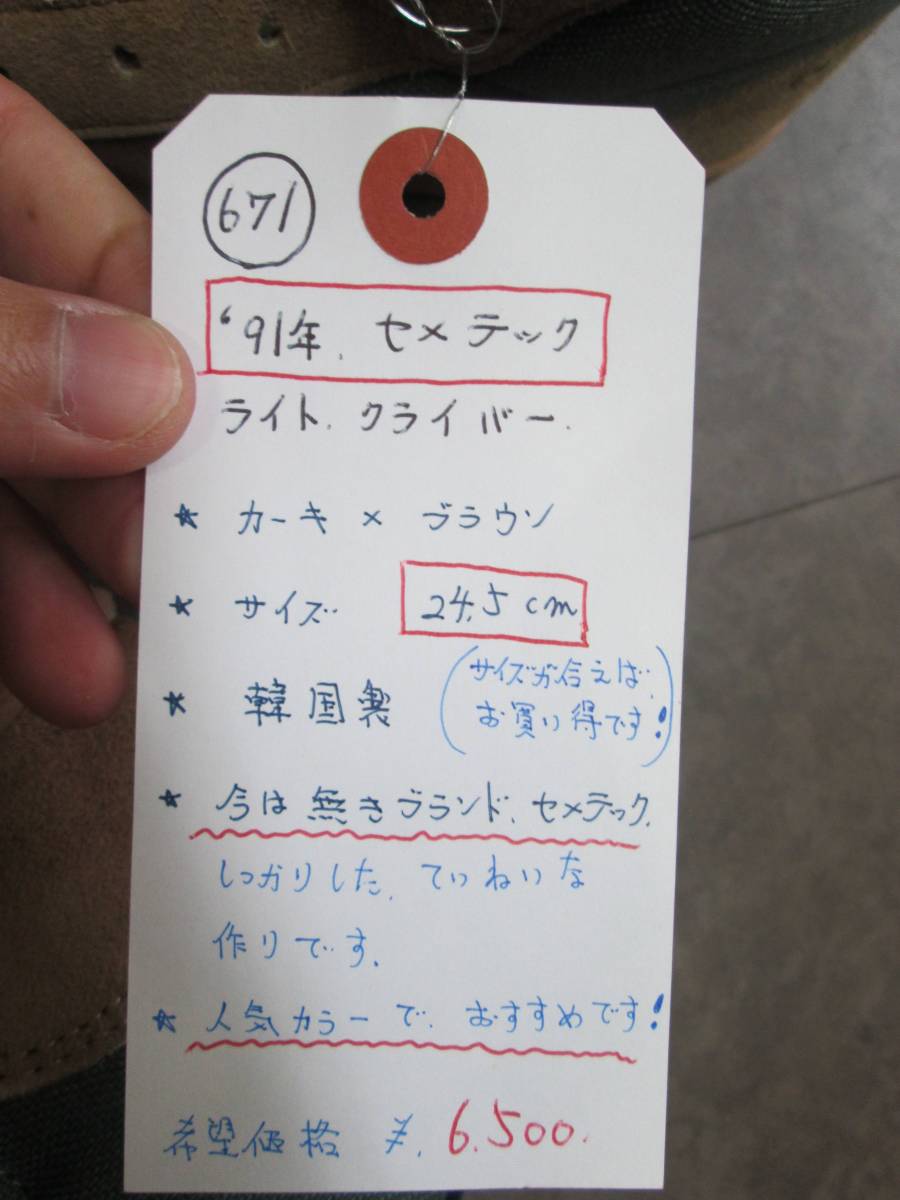 671
'91年. セメテック
ライト. クライバー.
★ カーキ × ブラウン
★ サイズ 24.5cm
★ 韓国製 (サイズが合えば、
お買い得です!)
★ 今は無きブランド、セメテック.
しっかりした、ていねいな
作りです.
★ 人気カラーで、おすすめです!
希望価格 ¥. 6.500.